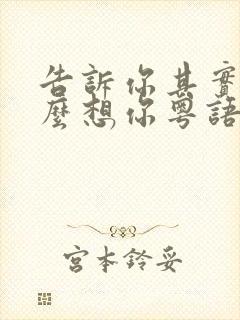 告訴你其實
麼想你粵語
宮本鈴妥